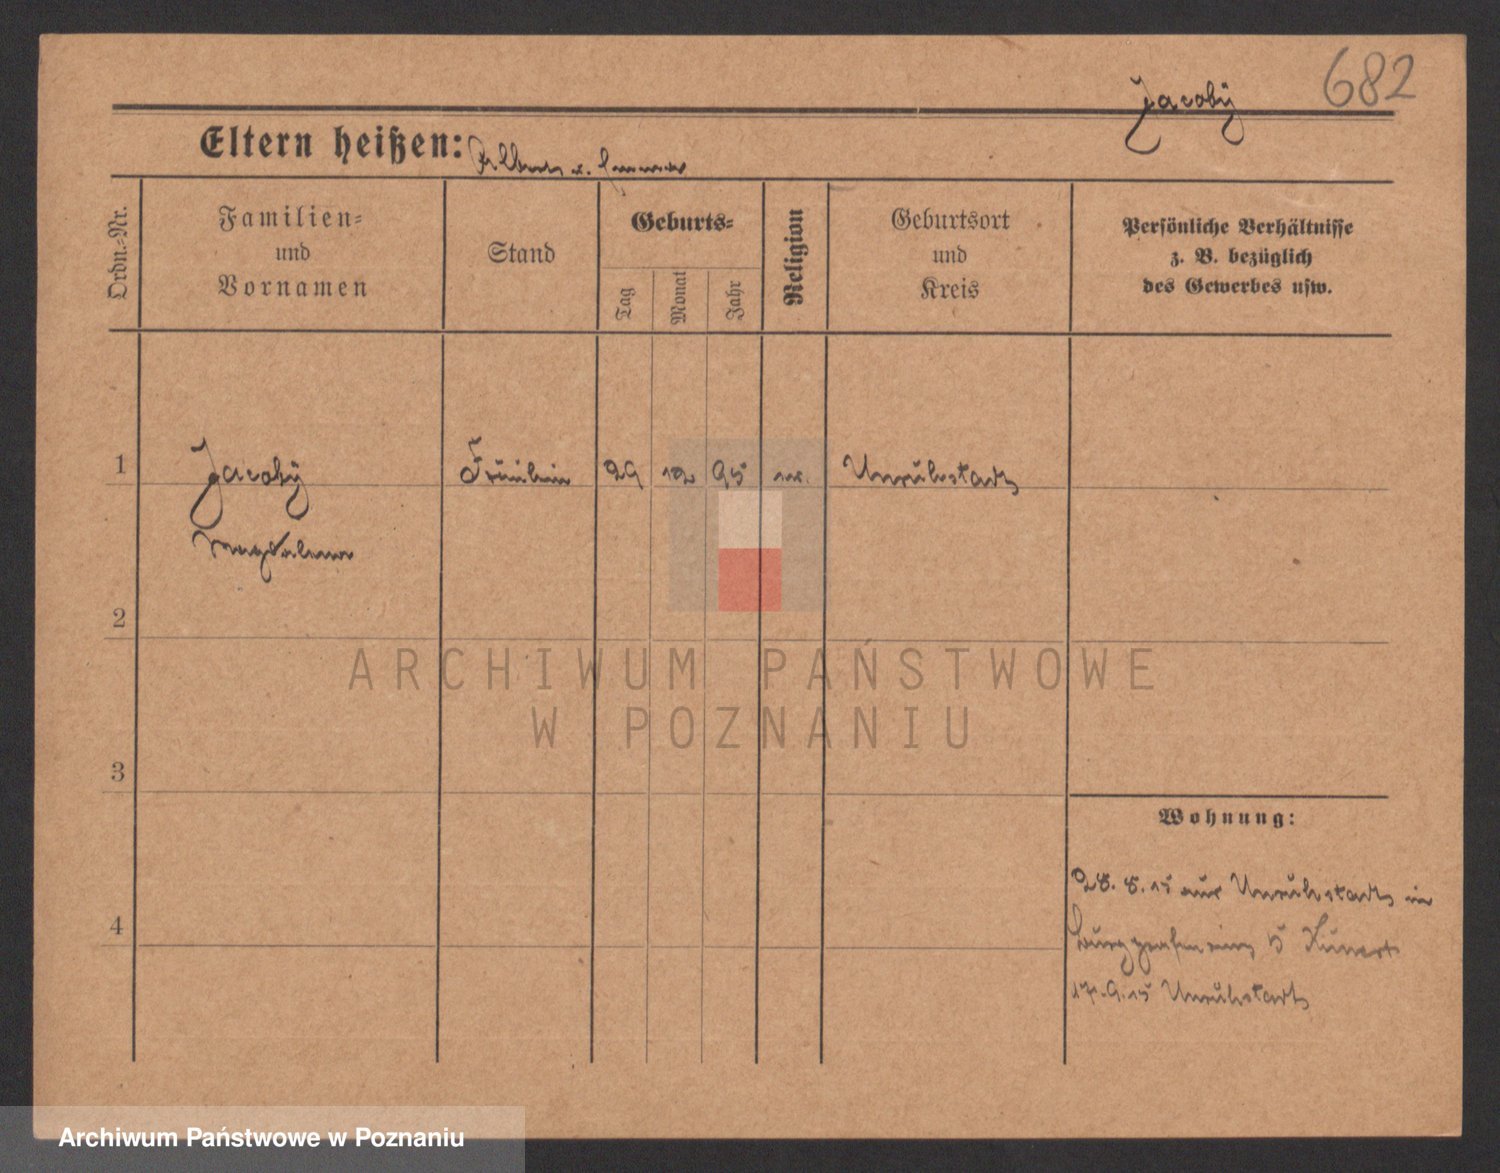 682
Jacoby
Eltern heißen: Albert u. Emma
Ordn.=Nr.
Familien=
und
Vornamen
Stand
Geburts=
Tag
Monat
Jahr
Religion
Geburtsort
und
Kreis
Persönliche Verhältnisse
z. B. bezüglich
des Gewerbes usw.
1 Jacoby Fräulein 29 12 95 Unruhstadt
Magdalena
2
3
4
Wohnung:
28. 8. 15 aus Unruhstadt in
Burggrafenring 5 Kunert
17. 9. 15 Unruhstadt
ARCHIWUM PAŃSTWOWE
W POZNANIU
Archiwum Państwowe w Poznaniu